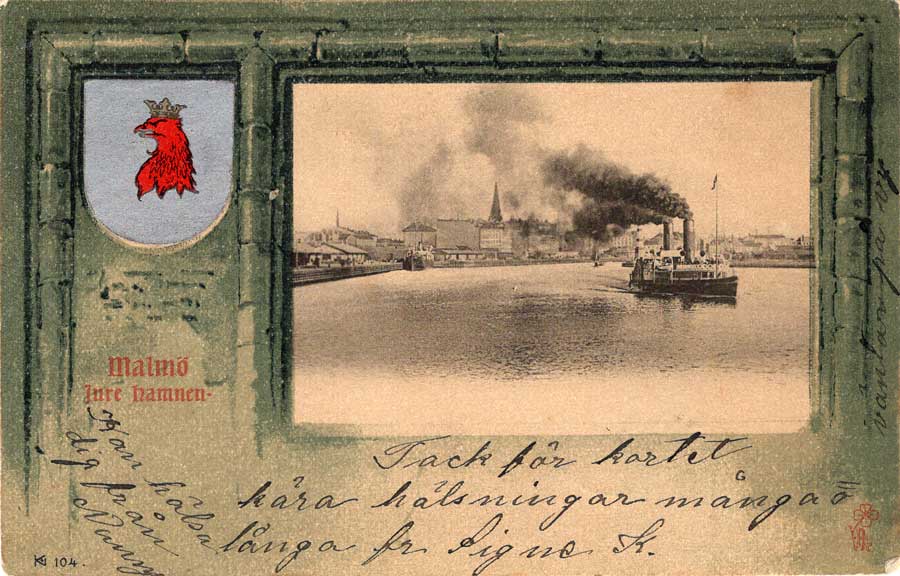 Malmö
Inre hamnen.
Tack för kortet
kära hälsningar många o
långa fr Signe K.
Kan hälsa
dig från
Nanny
väntan på
104.